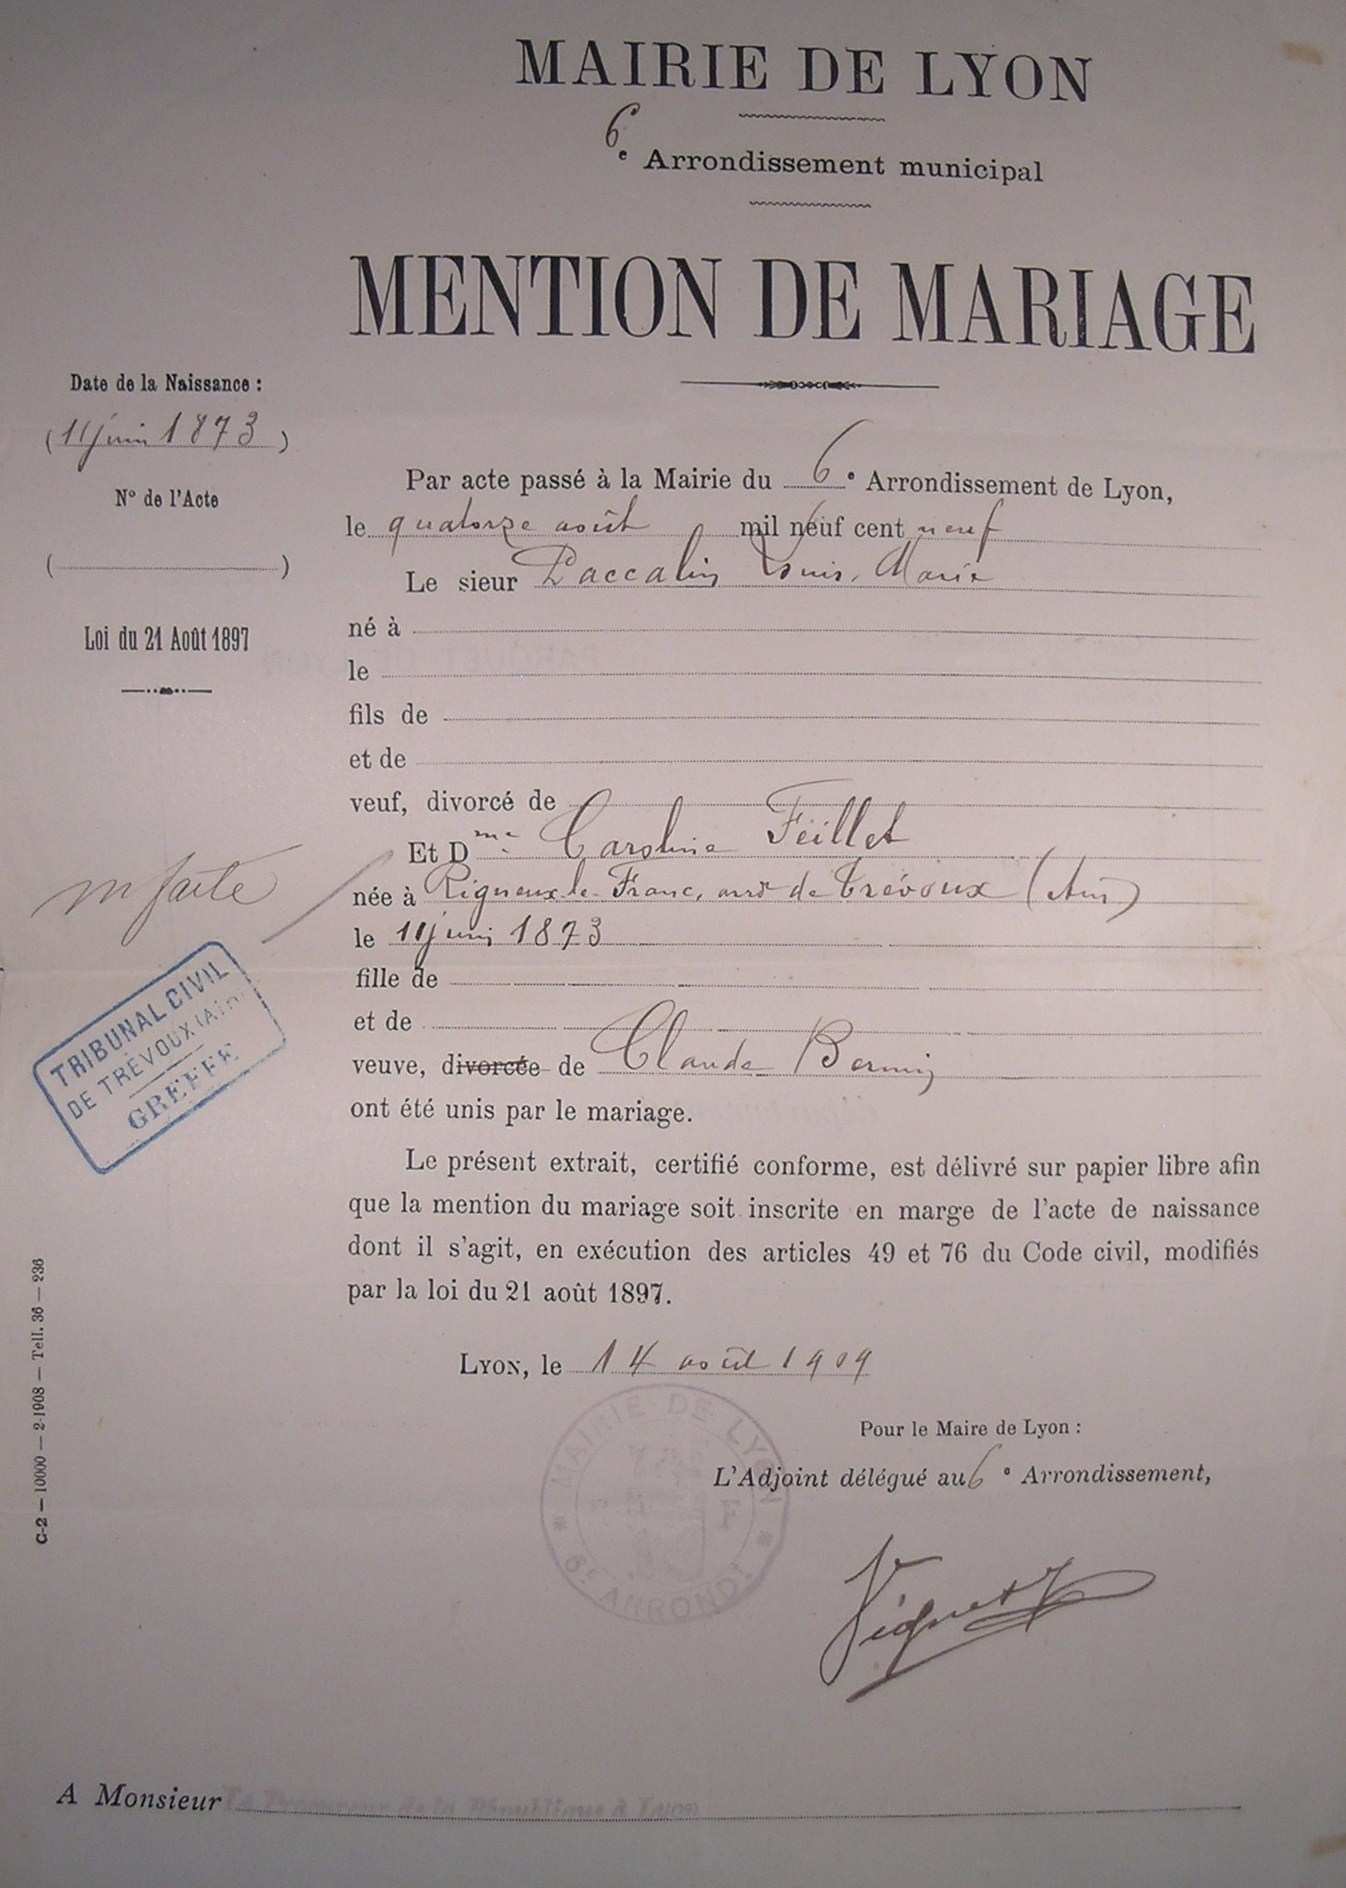 MAIRIE DE LYON
6e Arrondissement municipal
MENTION DE MARIAGE
Date de la Naissance :
(11 juin 1873)
N° de l'Acte
( )
Loi du 21 Août 1897
Par acte passé à la Mairie du 6e Arrondissement de Lyon,
le quatorze août mil neuf cent neuf
Le sieur Paccalin Louis, Marie
né à
le
fils de
et de
veuf, divorcé de
Et Dme Caroline Feillet
née à Rigneux-le-Franc, arrdt de Trévoux (Ain)
le 11 juin 1873
fille de
et de
veuve, divorcée de Claude Bernin
ont été unis par le mariage.
Le présent extrait, certifié conforme, est délivré sur papier libre afin
que la mention du mariage soit inscrite en marge de l'acte de naissance
dont il s'agit, en exécution des articles 49 et 76 du Code civil, modifiés
par la loi du 21 août 1897.
m faite
TRIBUNAL CIVIL
DE TRÉVOUX (Ain)
GREFFE
Lyon, le 14 août 1909
MAIRIE DE LYON
R F
6e ARRONDt
Pour le Maire de Lyon :
L'Adjoint délégué au 6e Arrondissement,
C-2 — 10000 — 2-1908 — Tell. 36 — 236
A Monsieur Le Procureur de la République à Lyon